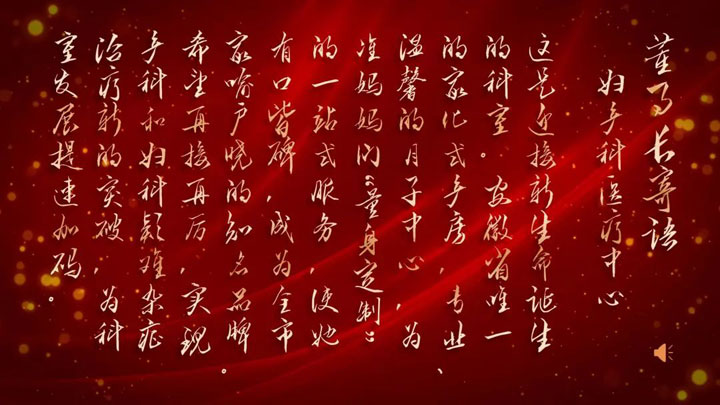 董事长寄语
妇产科医疗中心
这是迎接新生命诞生
的科室。安徽省唯一
的家化式产房，专业、
温馨的月子中心，为
准妈妈们“量身定制”
的一站式服务，使她
有口皆碑，成为全市
家喻户晓的知名品牌。
希望再接再厉，实现
产科和妇科疑难杂症
治疗新的突破，为科
室发展提速加码。